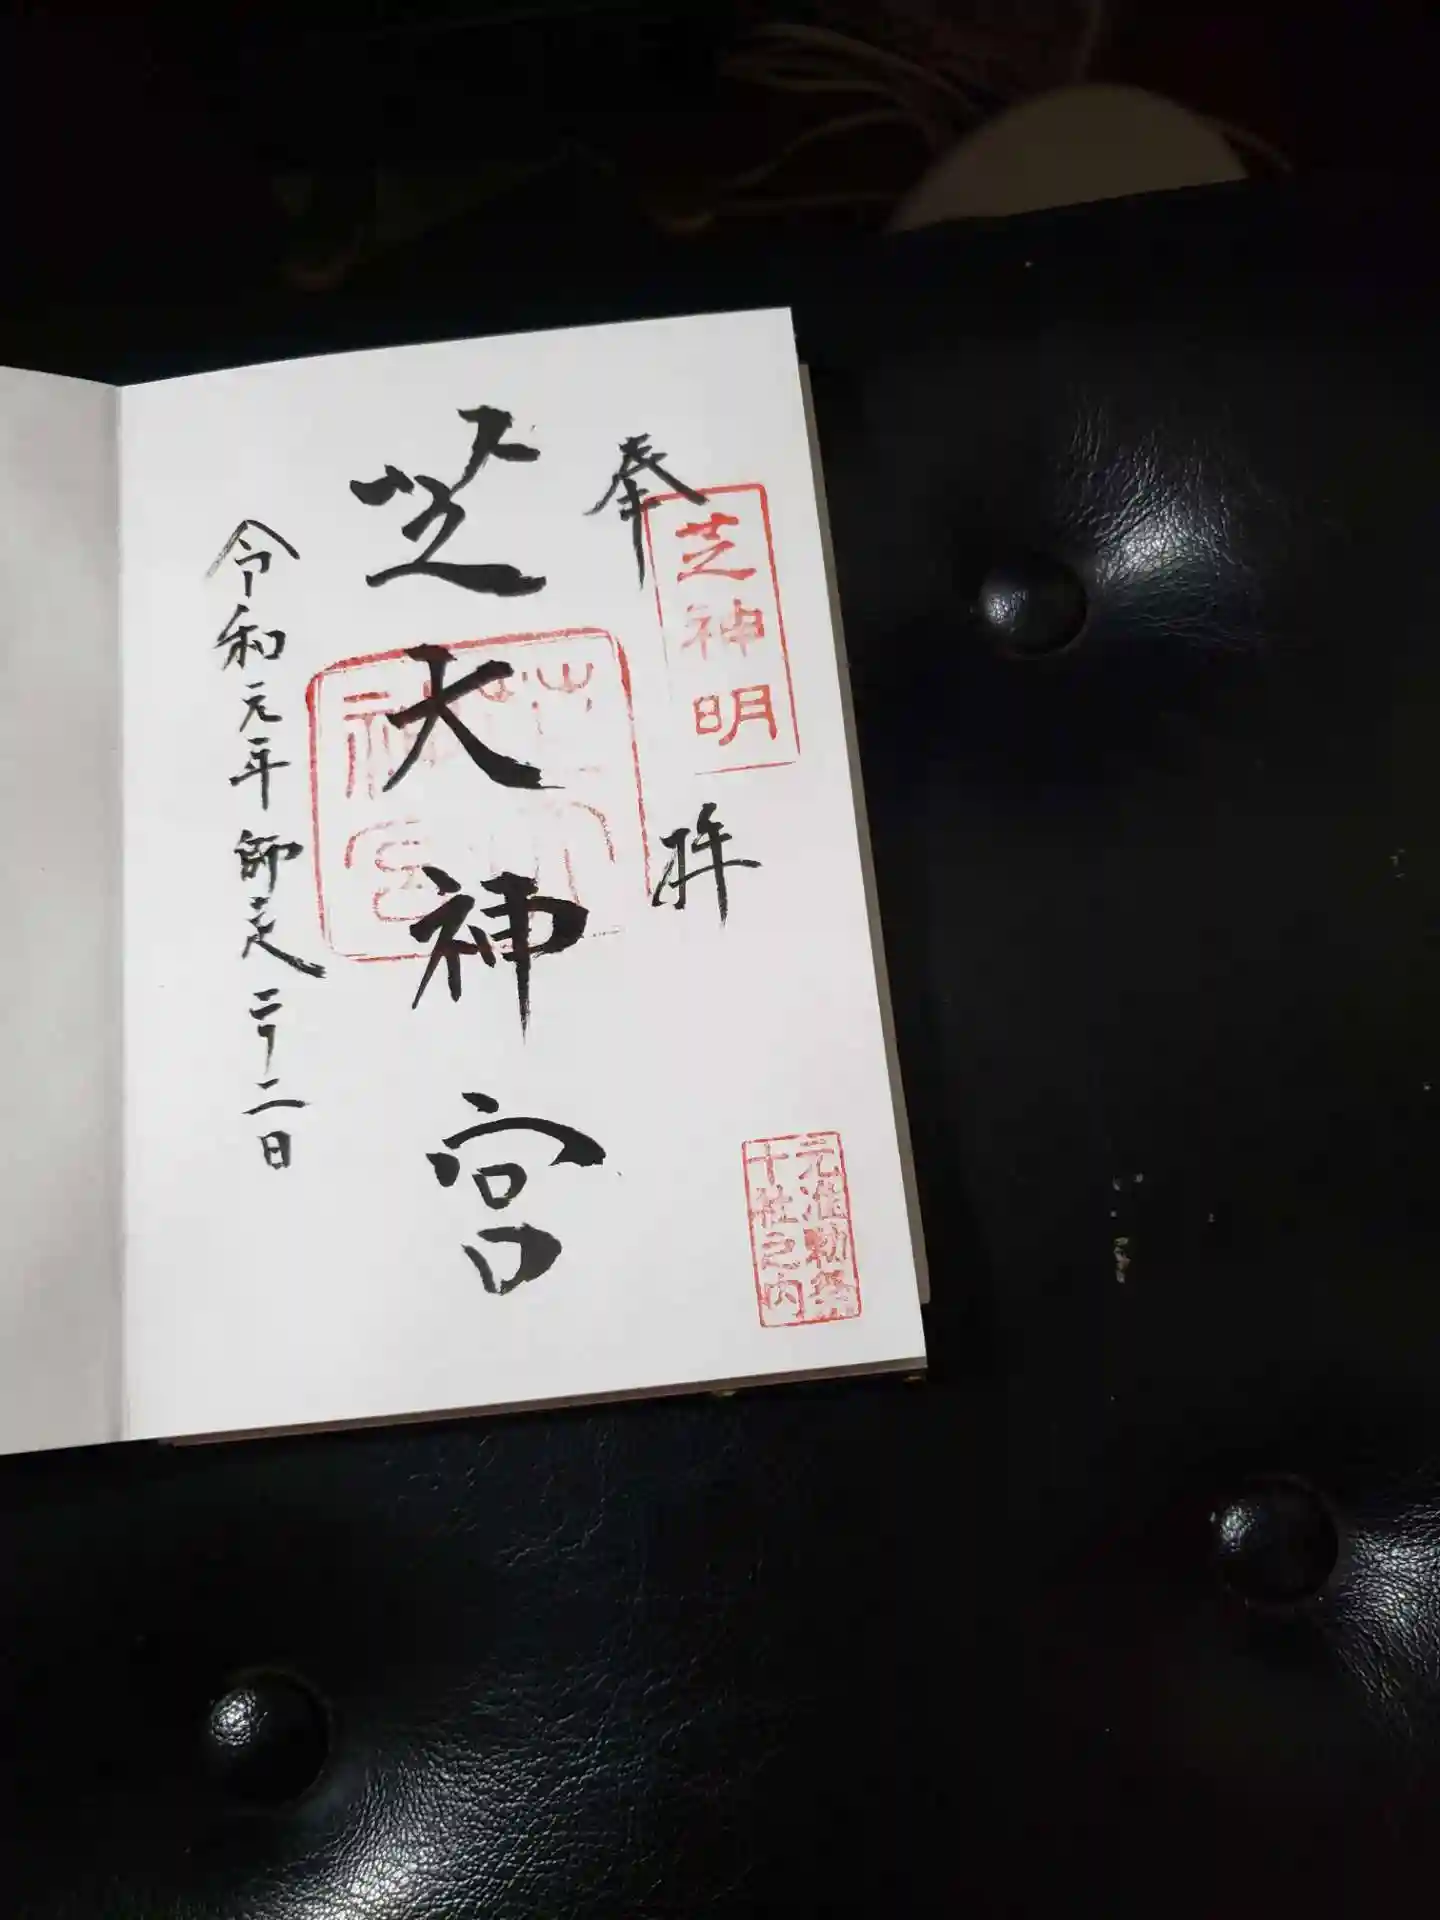 奉拝
芝神明
元准勅祭
十社之内
芝大神宮
令和元年師走二十二日